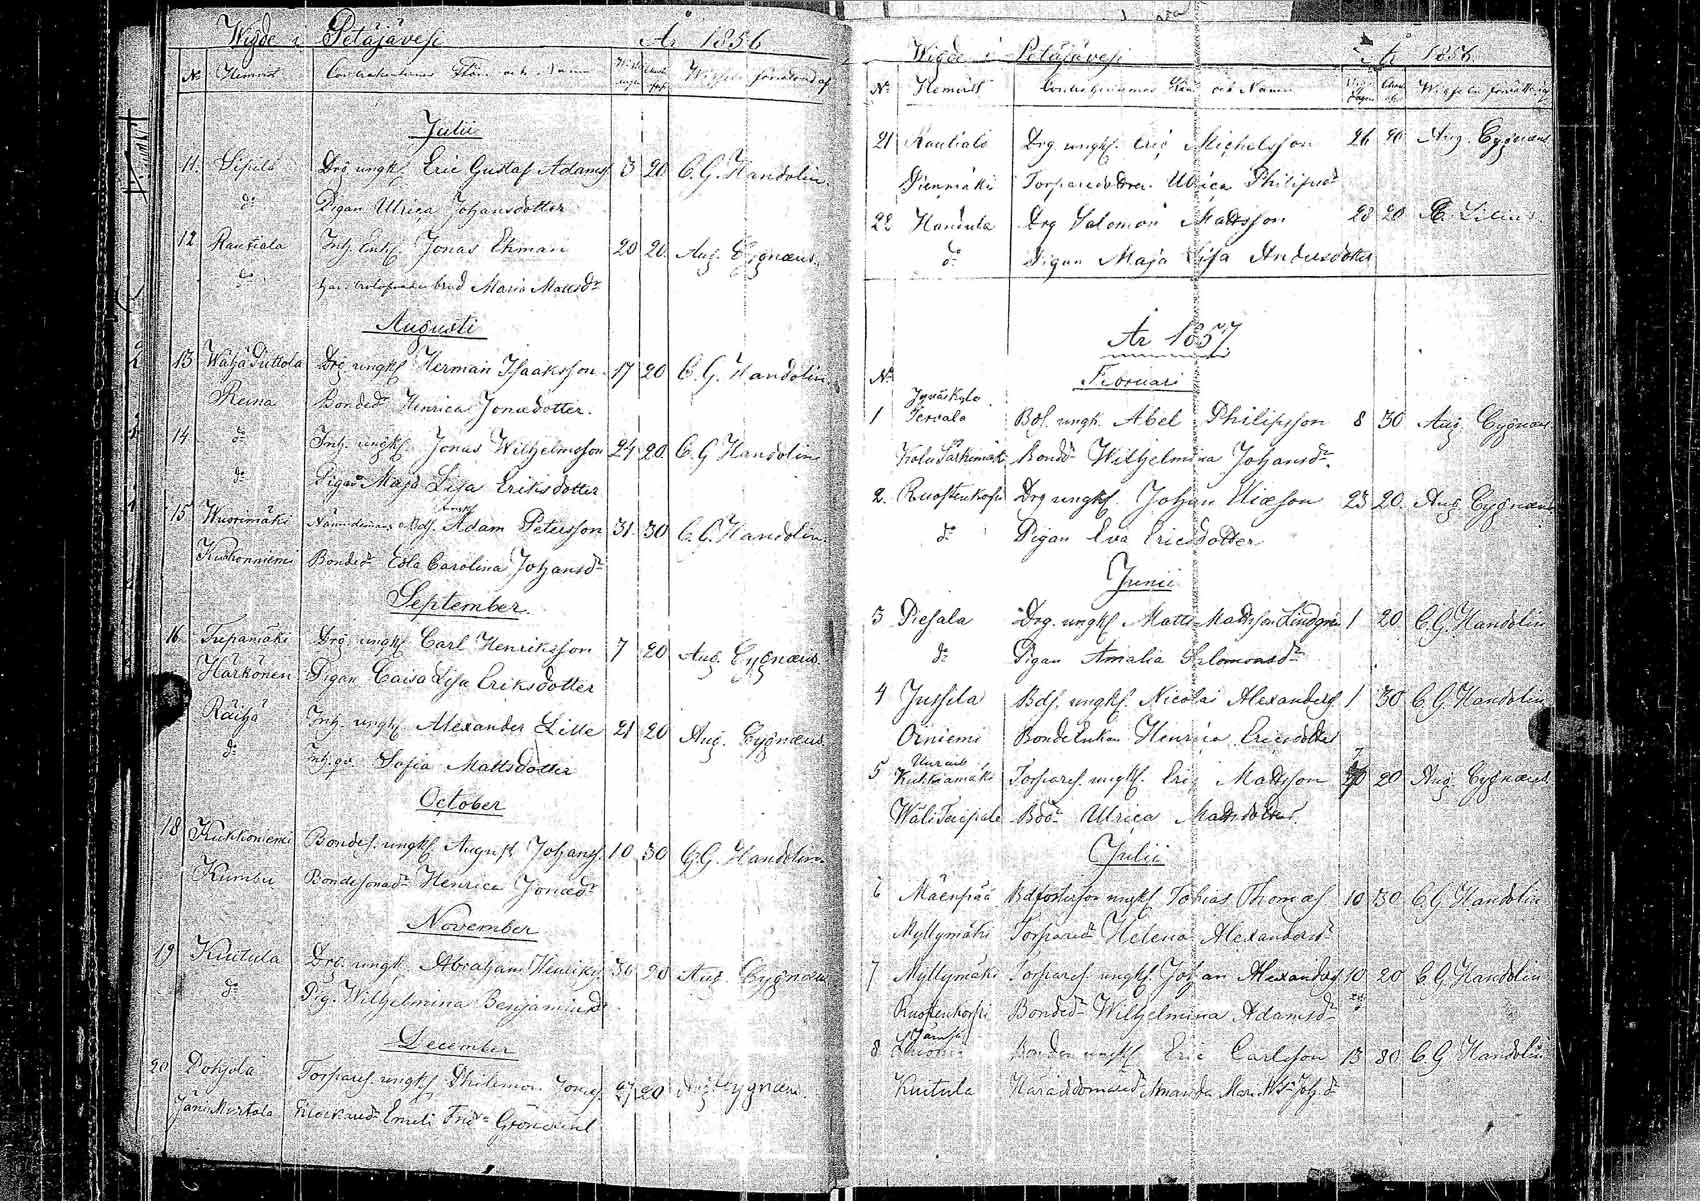 Wigde i Petäjävesi År 1856
No Hemvist Contrahenternas Stån och Namn
Julii
11. Sipilä Drg ungk. Eric Gustaf Adamsf 3 20 C.G. Handolin.
do Pigan Ulrica Johansdotter
12 Rautiala Inh. Enkl. Jonas Ekman 20 20 Aug. Cygnæus.
do brud Maria Mattsdr
Augusti
13 Wähä Puttola Drg ungkf Herman Isaaksson 17 20 C.G. Handolin
Reina Bonded Henrica Jonædotter.
14 do Inh. ungkf. Jonas Wilhelmsson 24 20 C.G Handolin
do Pigan Maja Lisa Eriksdotter
15 Wuorimäki Nämndemans Adam Petersson 31 30 C.G. Handolin.
Kuckonniemi Bondedr Edla Carolina Johansdr
September
16 Trepamäki Drg ungkf Carl Henriksson 7 20 Aug. Cygnæus.
Härkönen Pigan Caisa Lisa Eriksdotter
Räihä Inh. ungkf Alexander Lille 21 20 Aug. Cygnæus
do Inh. qv. Sofia Mattsdotter
October
18 Kuckoniemi Bondes. ungkf. August Johansf. 10 30 C.G. Handolin.
Kumbu Bondesonadr Henrica Jonædr
November
19 Kuitula Drg. ungk. Abraham Henriksf. 30 20 Aug. Cygnæus
do Pig. Wilhelmina Benjaminsdr
December
20 Pohjola Torparef. ungkf Philemon Jonæf 27 20 Aug. Cygnæus.
Klockaredr Emeli Grönlund
Wigde i Petäjävesi År 1856
No Hemvist Contrahenternas Stån och Namn
21 Rautiala Drg ungkf. Eric Michelsson 26 20 Aug. Cygnæus
Torparedotren Ulrica Philipsdr
22 Handula Drg Salomon Mattsson 28 20 Lilius.
do Pigan Maja Lisa Andersdotter
År 1857
No
Februari
Jyväskylä
1 Tervala Bdf. ungk. Abel Philipsson 8 30 Aug Cygnæus.
Särkimäk Bondr Wilhelmina Johansdr.
2. Ruostenkorpi Drg ungkf. Johan 23 20. Aug Cygnæus
do Pigan Eva Ericsdotter
Junii
3 Piesala Drg. ungkf Matts Mattsson Lindgren 1 20 C.G. Handolin
do Pigan Amalia Salomonsdr
4 Jussila Bdf. ungkf. Nicolai Alexandersf 1 30 C.G Handolin
Oiniemi Bonde Enkan Henrica Ericsdotter
5 Kukkamäki Torparef. ungkf. Eric Mattsson 20 Aug. Cygnæus
Wäli Taipale Bddr Ulrica Mattsdotter.
Julii
6 Mäenpää Bdfosterson ungkf Tobias Thomæf 10 30 C.G Handolin
Myllymäki Torparedr Helena Alexandersdr
7 Myllymäki Torparef. ungkf. Johan Alexandersf 10 20 C.G Handolin
Ruostenkorpi Bondedr Wilhelmina Adamsdr
8 Bonden ungkf Eric Carlsson 13 30 C.G Handolin
Kuitula Häradsdomaredr Amanda Joh.dr